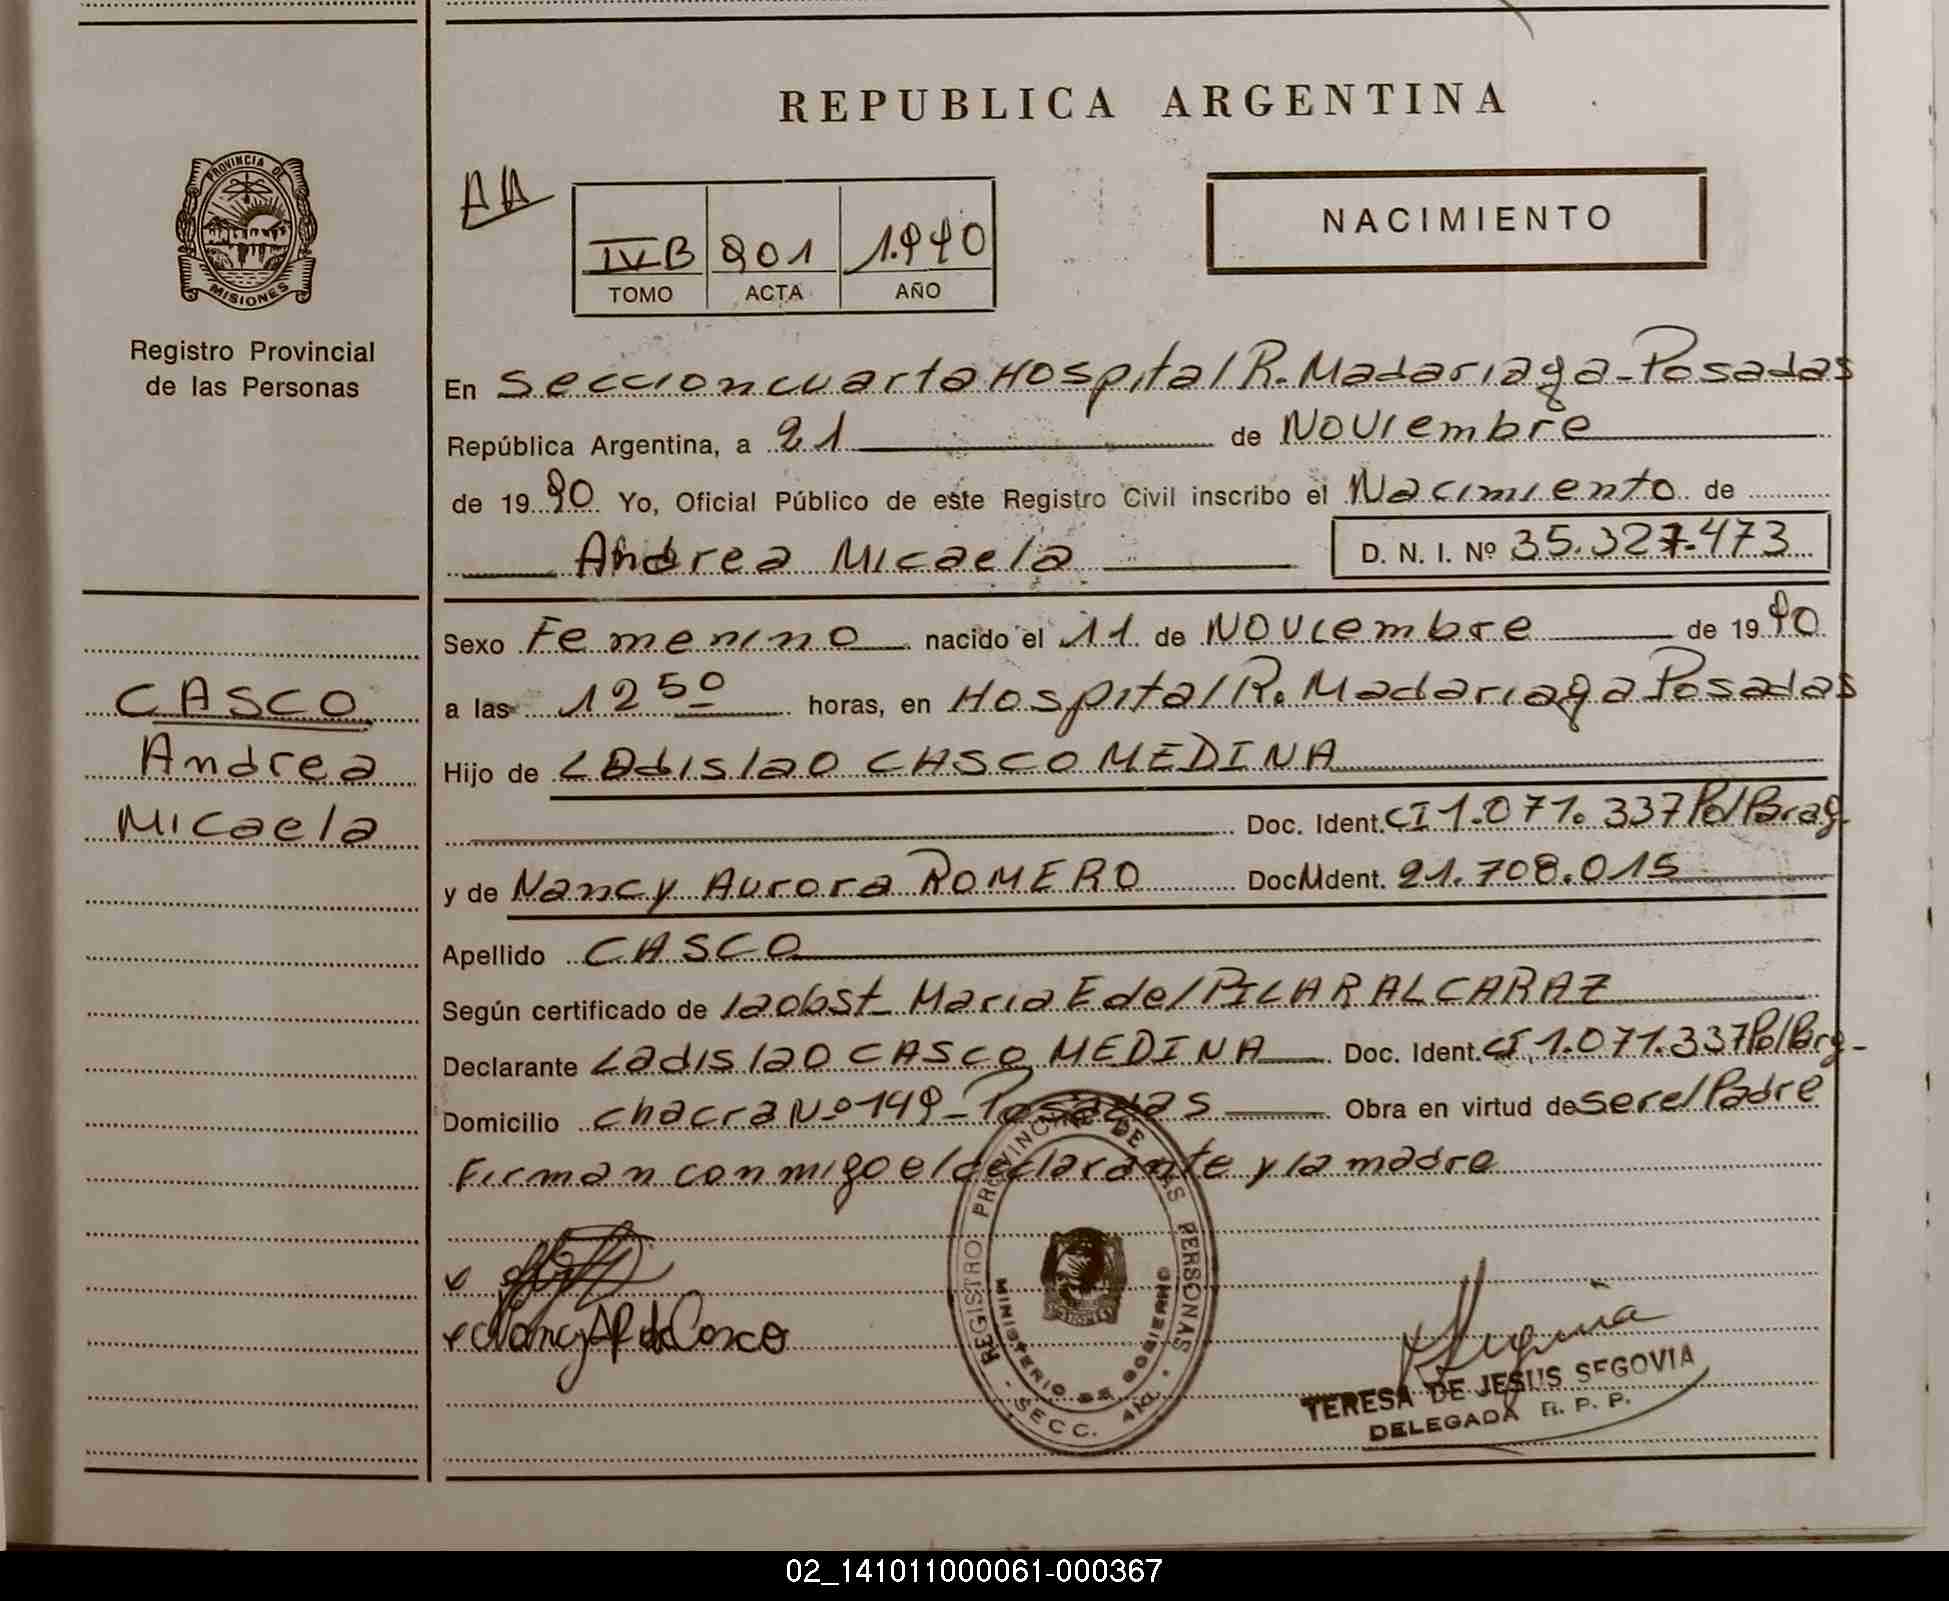 REPUBLICA ARGENTINA
PROVINCIA DE
MISIONES
Registro Provincial
de las Personas
AA
IVB 201 1.990
TOMO ACTA AÑO
NACIMIENTO
En Seccion cuarta Hospital R. Madariaga - Posadas
República Argentina, a 21 de Noviembre
de 1990 Yo, Oficial Público de este Registro Civil inscribo el Nacimiento de
Andrea Micaela D. N. I. Nº 35.327.473
Sexo Femenino nacido el 11 de Noviembre de 1990
CASCO
Andrea
Micaela
a las 12 50 horas, en Hospital R. Madariaga Posadas
Hijo de Ladislao CASCO MEDINA
Doc. Ident. CI 1.071.337 Pol Parag.
y de Nancy Aurora ROMERO Doc M dent. 21.708.015
Apellido CASCO
Según certificado de la obst. Maria E del PILAR ALCARAZ
Declarante Ladislao CASCO MEDINA Doc. Ident. CI 1.071.337 Pol Prg-
Domicilio chacra Nº 149 - Posadas Obra en virtud de ser el Padre
Firman conmigo el declarante y la madre
Nancy AR de Casco
REGISTRO PROVINCIAL DE LAS PERSONAS
MINISTERIO DE GOBIERNO
SECC. 4ta.
Segovia
TERESA DE JESUS SEGOVIA
DELEGADA R. P. P.
02_141011000061-000367